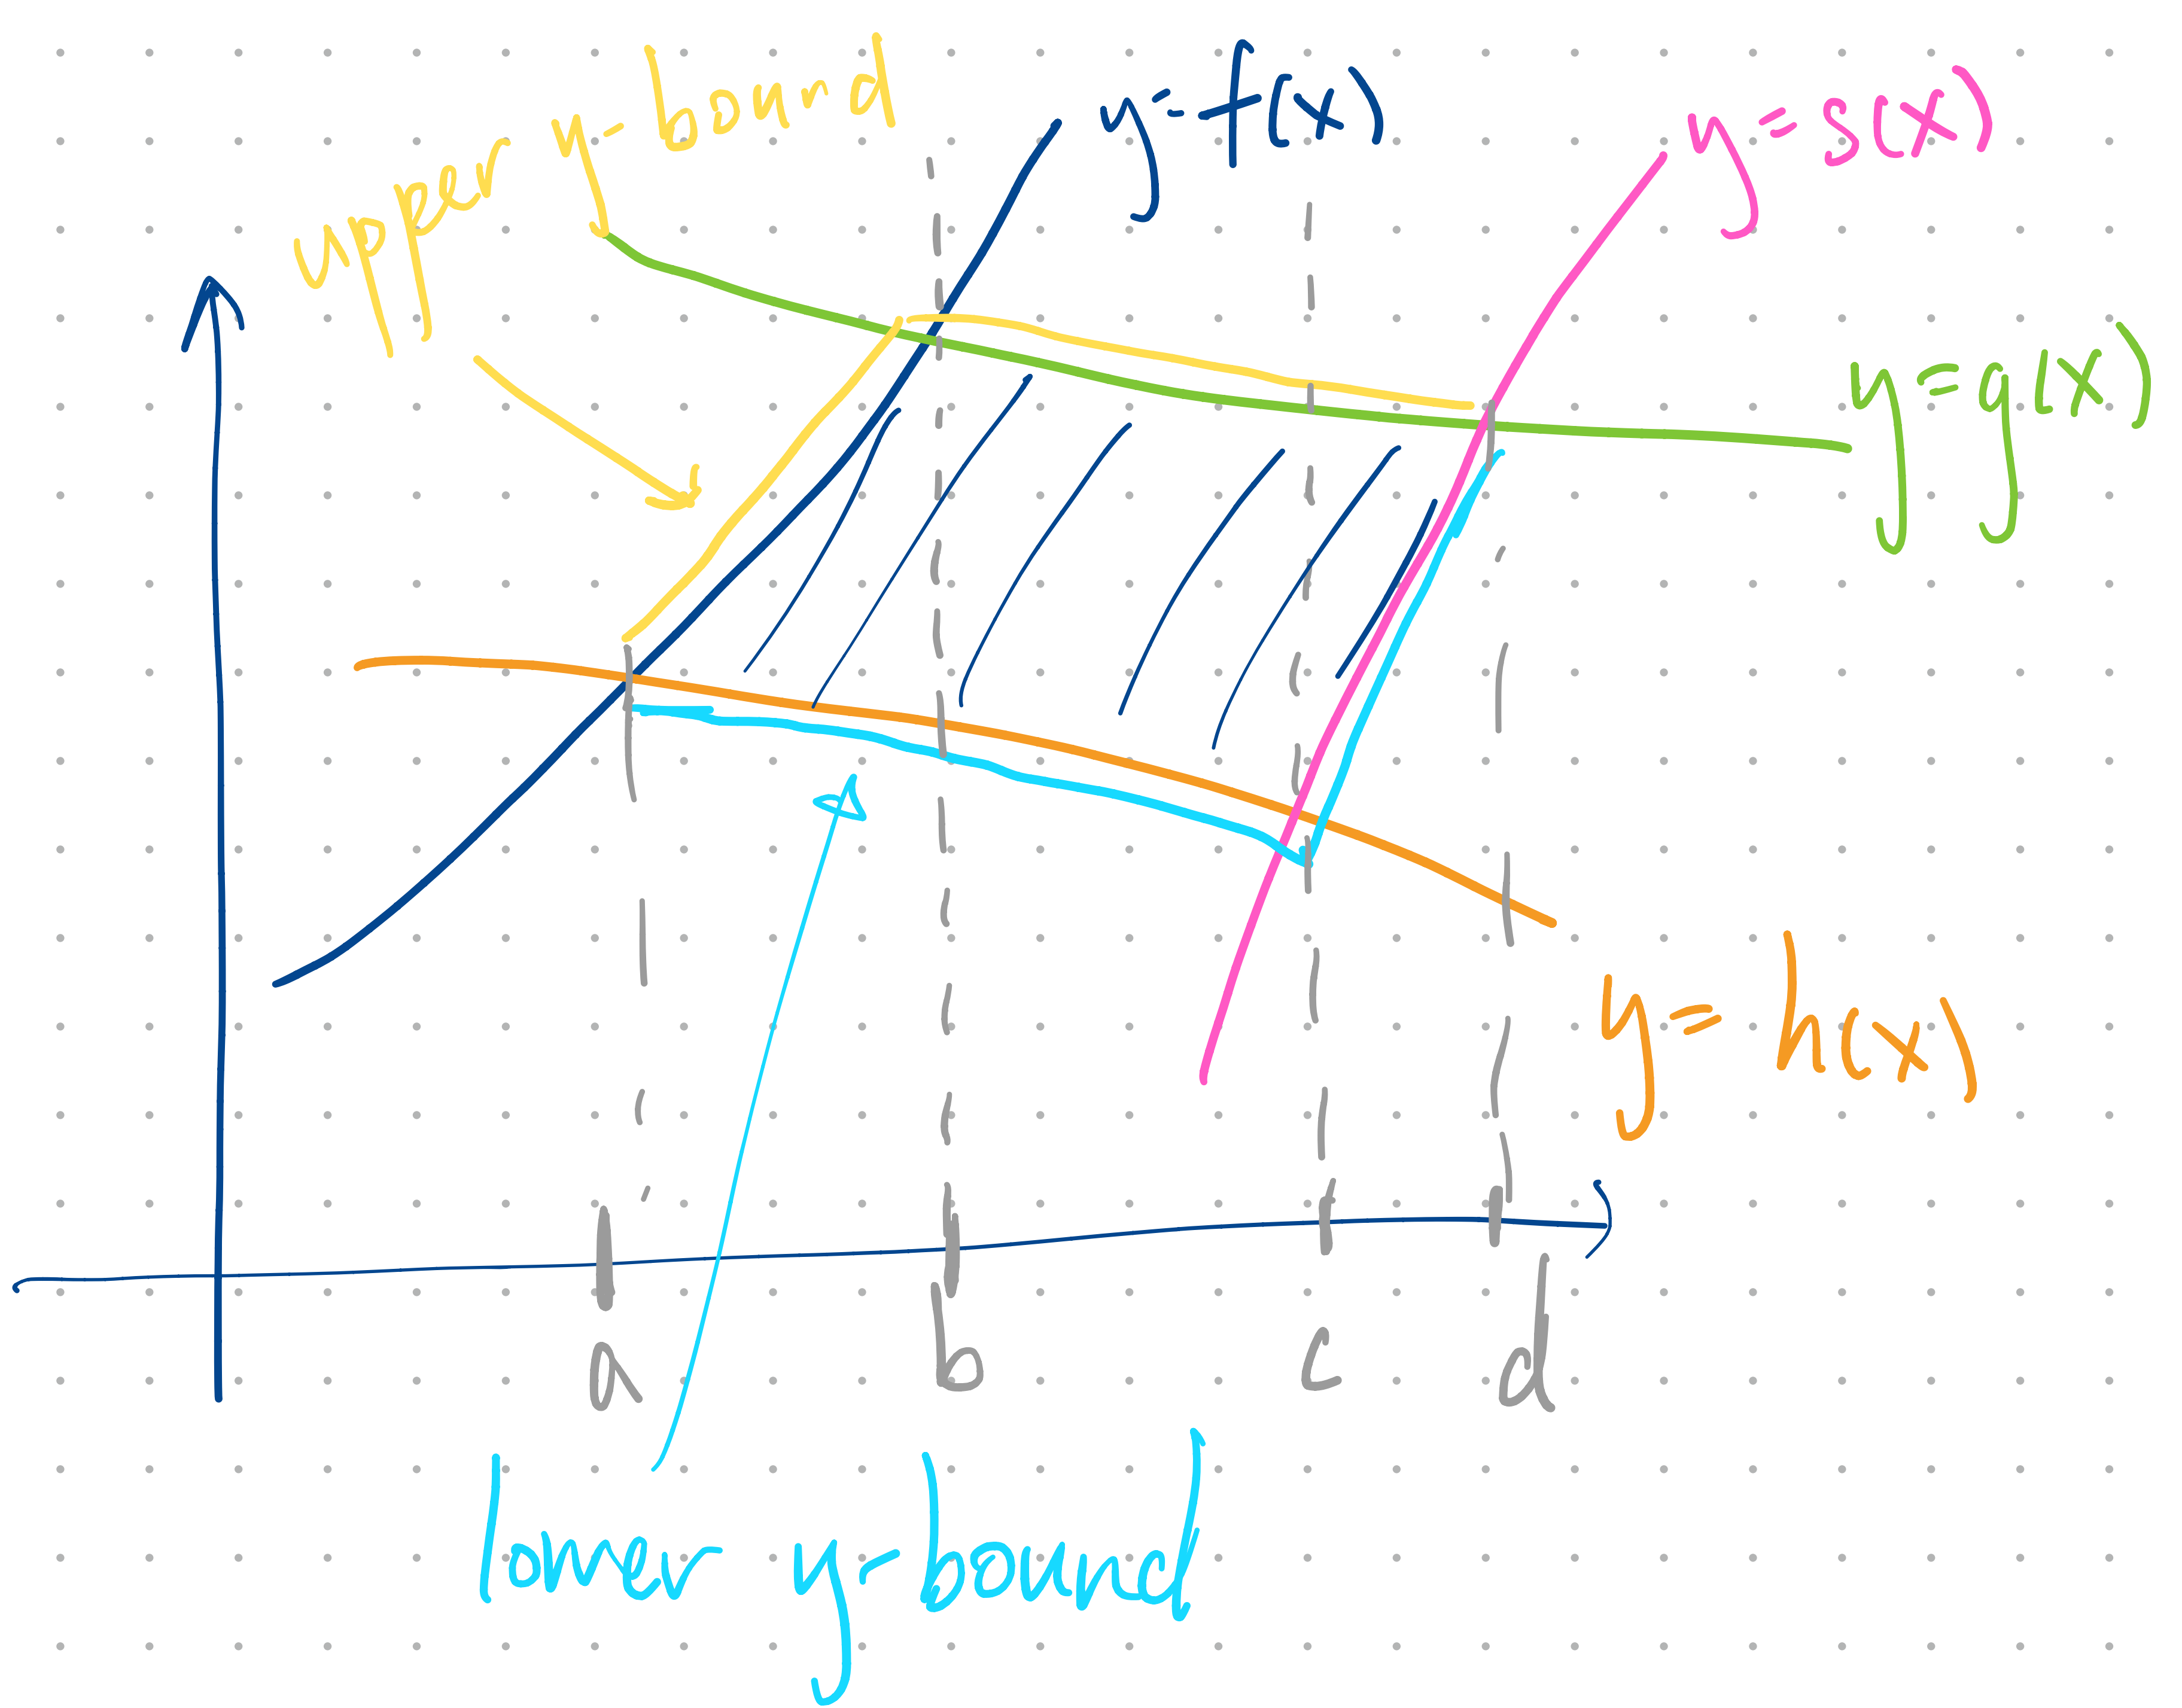 upper y-bound
y=f(x)
y=s(x)
y=g(x)
y=h(x)
a b c d
lower y-bound